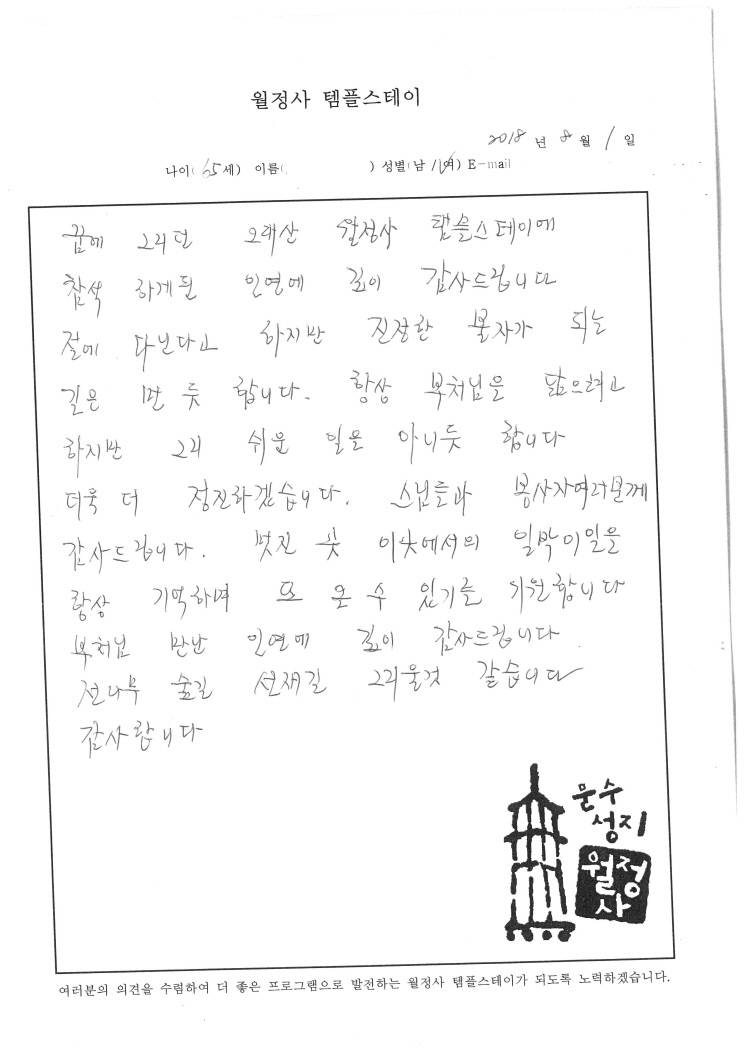 월정사 템플스테이
2018 년 8 월 1 일
나이( 65 세) 이름( ) 성별(남 / 여) E-mail
꿈에 그리던 오대산 월정사 템플스테이에
참석 하게된 인연에 깊이 감사드립니다
절에 다닌다고 하지만 진정한 불자가 되는
길은 먼 듯 합니다. 항상 부처님을 닮으려고
하지만 그리 쉬운 일은 아니듯 합니다
더욱 더 정진하겠습니다. 스님들과 봉사자여러분께
감사드립니다. 멋진 곳 이곳에서의 일박이일을
항상 기억하며 또 올 수 있기를 기원합니다
부처님 만난 인연에 깊이 감사드립니다
전나무 숲길 선재길 그리울것 같습니다
감사합니다
문수
성지
월정
사
여러분의 의견을 수렴하여 더 좋은 프로그램으로 발전하는 월정사 템플스테이가 되도록 노력하겠습니다.